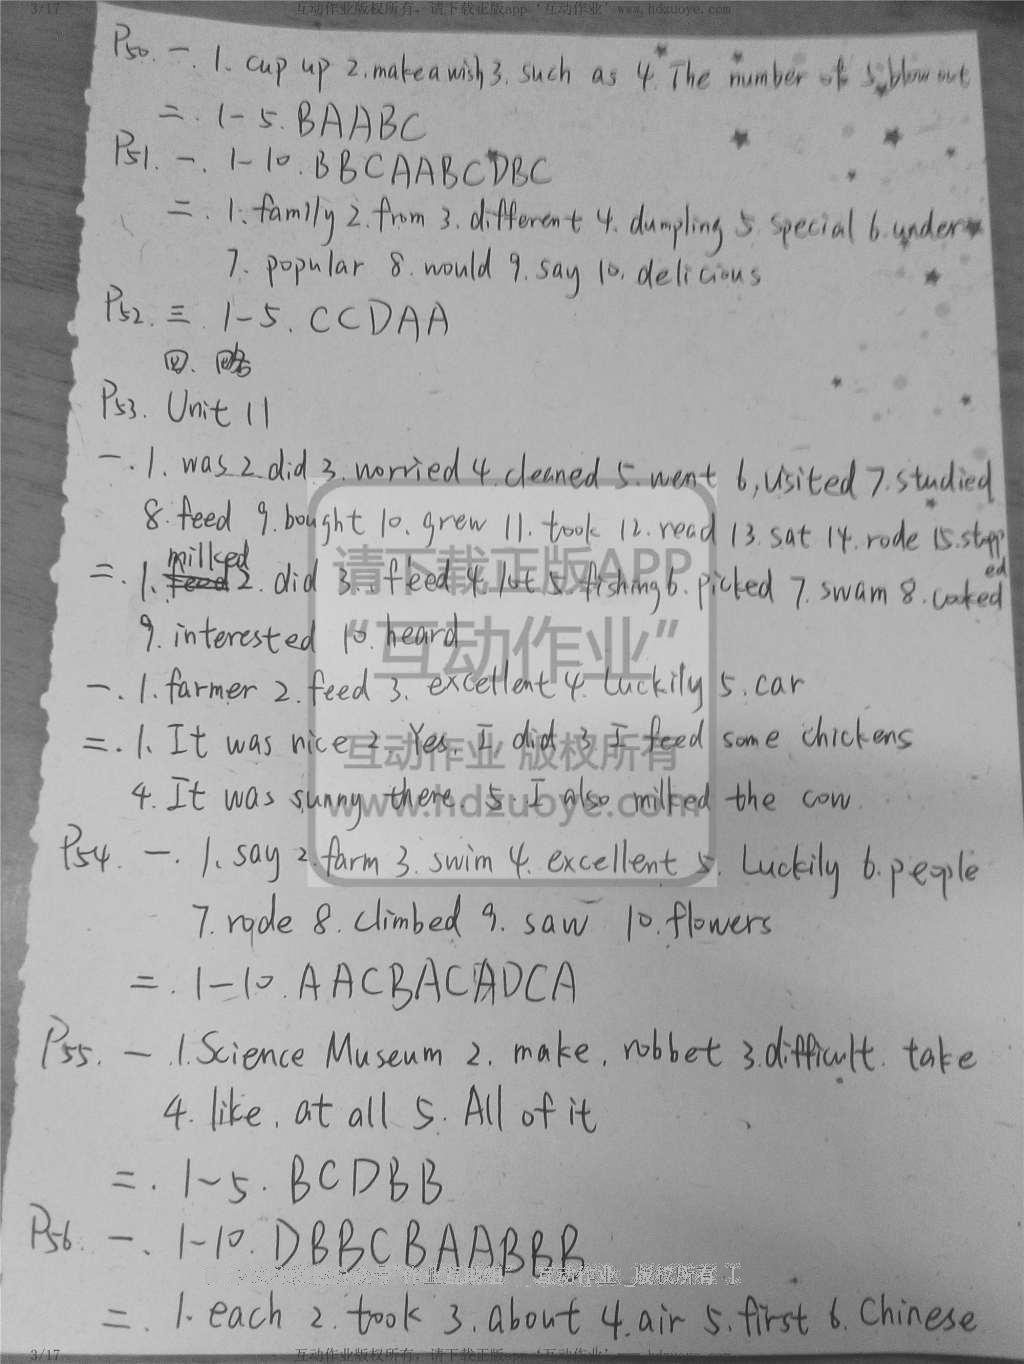 3/17 互动作业版权所有，请下载正版app‘互动作业’www.hdzuoye.com
P50. 一. 1. cup up 2. make a wish 3. such as 4. The number of 5. blow out
二. 1-5. BAABC
P51. 一. 1-10. BBCAABCDBC
二. 1. family 2. from 3. different 4. dumpling 5. special 6. under
7. popular 8. would 9. say 10. delicious
P52. 三. 1-5. CCDAA
四. 略
P53. Unit 11
一. 1. was 2. did 3. worried 4. cleaned 5. went 6. visited 7. studied
8. feed 9. bought 10. grew 11. took 12. read 13. sat 14. rode 15. stopped
二. 1. milked 2. did 3. feed 4. lot 5. fishing 6. picked 7. swam 8. cooked
请下载正版APP
9. interested 10. heard
“互动作业”
一. 1. farmer 2. feed 3. excellent 4. Luckily 5. car
二. 1. It was nice 2. Yes. I did 3 I feed some chickens
互动作业 版权所有
4. It was sunny there. 5. I also milked the cow.
www.hdzuoye.com
P54. 一. 1. say 2. farm 3. swim 4. excellent 5. Luckily 6. people
7. rode 8. climbed 9. saw 10. flowers
二. 1-10. AACBACADCA
P55. 一 1. Science Museum 2. make. robbet 3. difficult. take
4. like. at all 5. All of it
二. 1~5. BCDBB
P56. 一. 1-10. DBBCBAABBB
互动作业 版权所有
二. 1. each 2. took 3. about 4. air 5. first 6. Chinese
3/17 互动作业版权所有，请下载正版app‘互动作业’www.hdzuoye.com